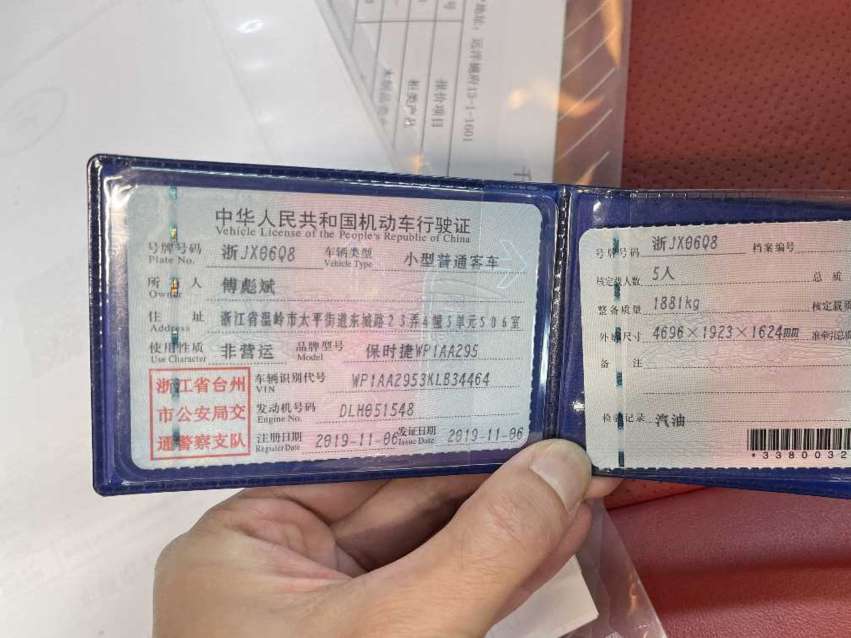 地址：远洋樾府13-1-1601
报价项目
柜类产品
木制品
中华人民共和国机动车行驶证
Vehicle License of the People's Republic of China
号牌号码 浙JX06Q8 车辆类型 小型普通客车
Plate No. Vehicle Type
所有人 傅彪斌
Owner
住址 浙江省温岭市太平街道东城路23弄4幢3单元506室
Address
使用性质 非营运 品牌型号 保时捷WP1AA295
Use Character Model
浙江省台州
市公安局交
通警察支队
车辆识别代号 WP1AA2953KLB34464
VIN
发动机号码 DLH051548
Engine No.
注册日期 2019-11-06 发证日期 2019-11-06
Register Date Issue Date
号牌号码 浙JX06Q8 档案编号
核定载人数 5人 总质
整备质量 1881kg 核定载质
外廓尺寸 4696×1923×1624mm 准牵引总质
备注
检验记录 汽油
*3380032